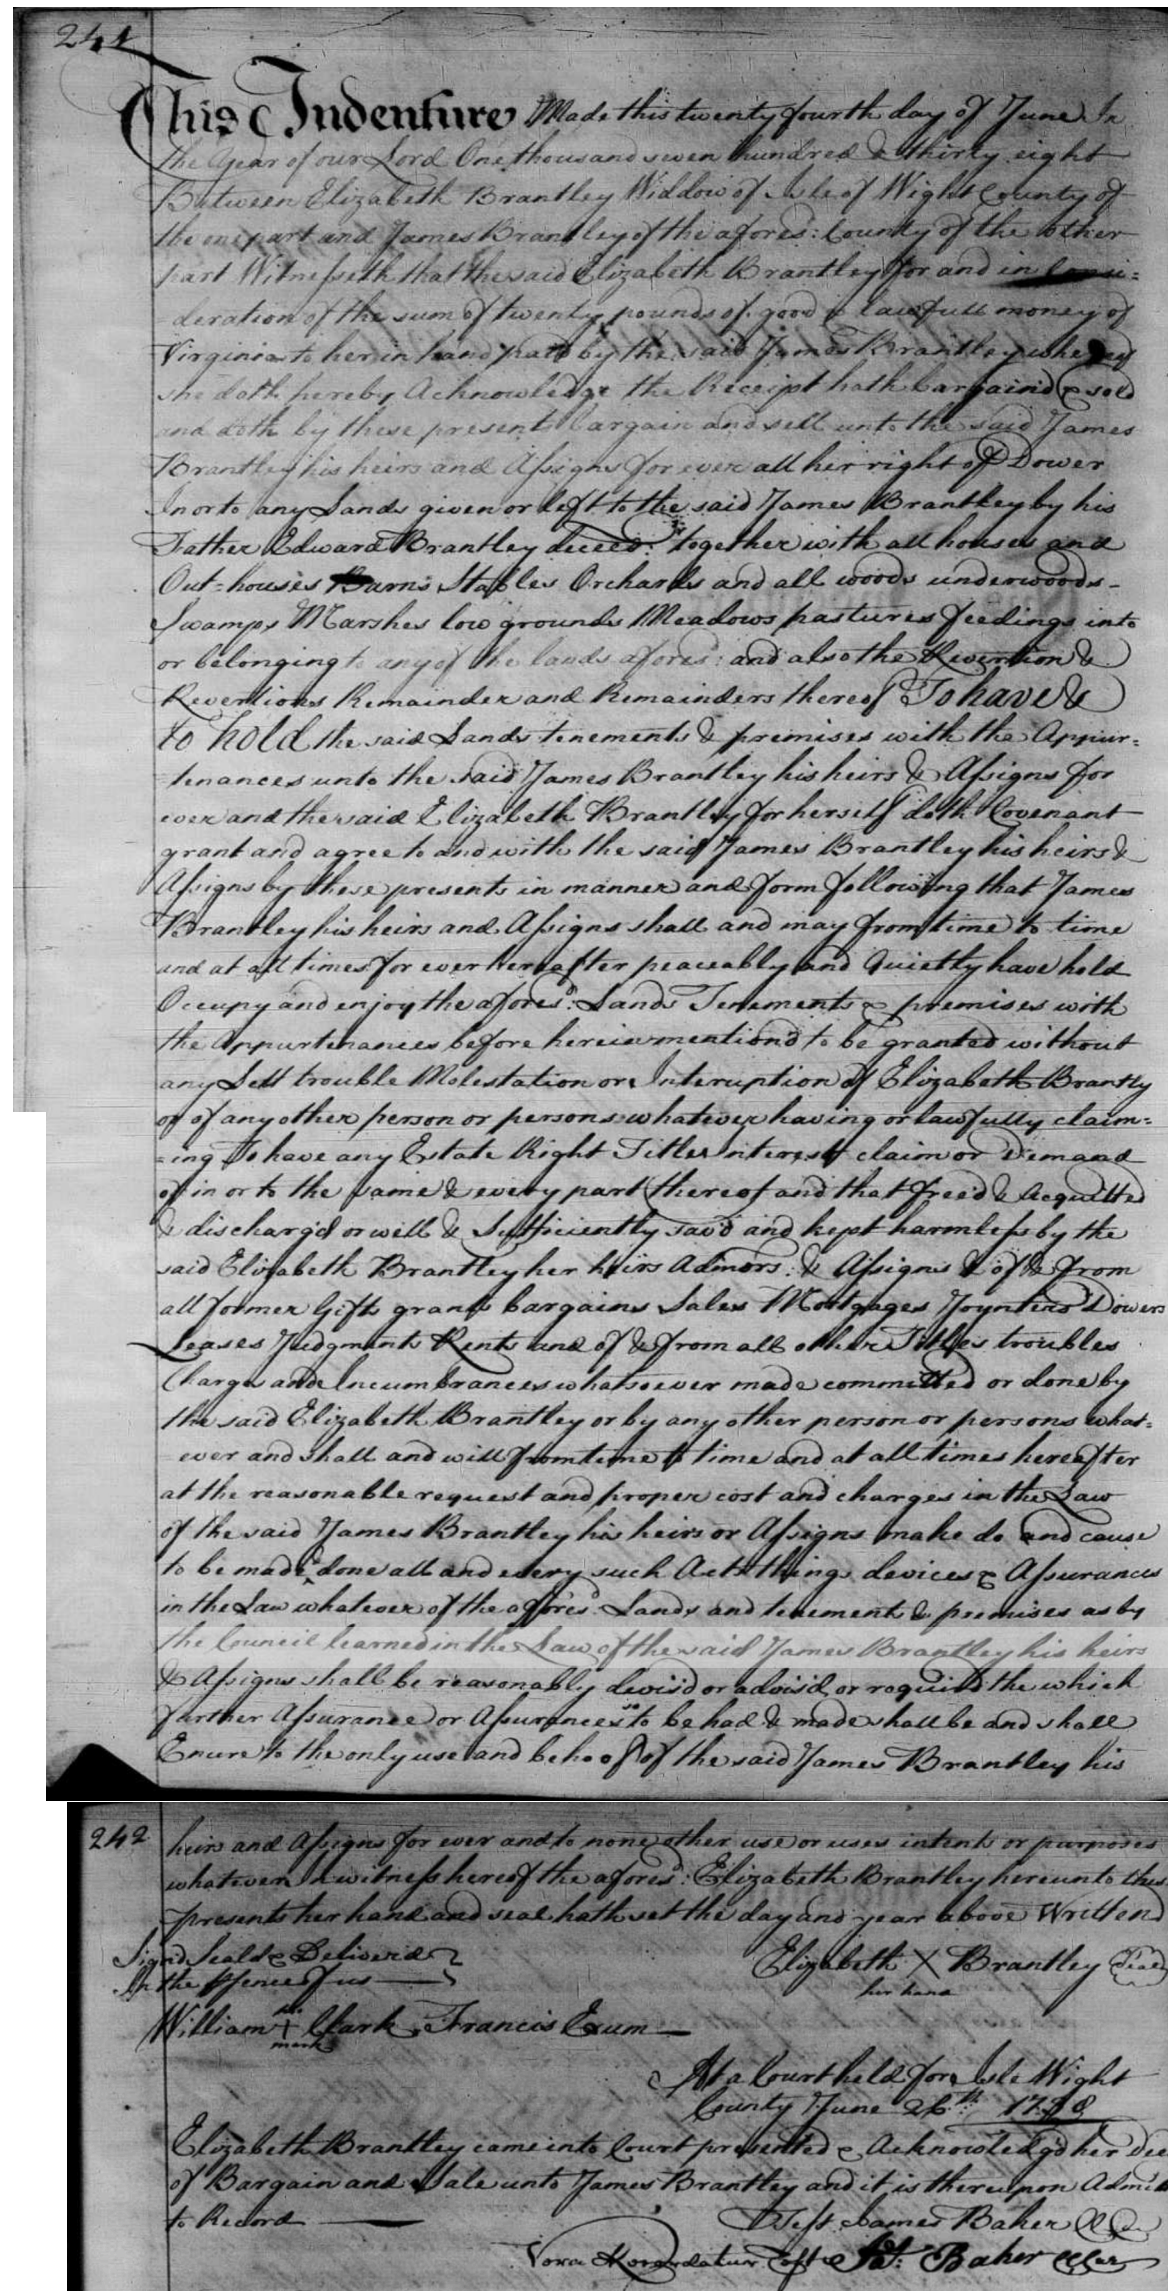 241
This Indenture Made this twenty fourth day of June In
the year of our Lord One thousand seven hundred & thirty eight
Between Elizabeth Brantley Widdow of Isle of Wight County of
the one part and James Brantley of the afores: County of the other
part Witnesseth that the said Elizabeth Brantley for and in consi=
=deration of the sum of twenty pounds of good & lawfull money of
Virginia to her in hand paid by the said James Brantley whereof
she doth hereby Acknowledge the Receipt hath bargain'd & sold
and doth by these presents bargain and sell unto the said James
Brantley his heirs and Assigns for ever all her right of Dower
In or to any Lands given or left to the said James Brantley by his
Father Edward Brantley deceed: together with all houses and
Out=houses Barns Stables Orchards and all woods underwoods-
Swamps Marshes low grounds Meadows pastures feedings into
or belonging to any of the lands afores^d: and also the Revertion &
Revertions Remainder and Remainders thereof To have &
to hold the said Lands tenements & premises with the Appur=
=tenances unto the said James Brantley his heirs & Assigns for
ever and the said Elizabeth Brantley for herself doth Covenant
grant and agree to and with the said James Brantley his heirs &
Assigns by these presents in manner and form following that James
Brantley his heirs and Assigns shall and may from time to time
and at all times for ever hereafter peaceably and Quietly have hold
Occupy and enjoy the afores^d: Lands Tenements & premises with
the Appurtenances before herein mention'd to be granted without
any Lett trouble Molestation or Interuption of Elizabeth Brantly
or of any other person or persons whatever having or lawfully claim=
=ing To have any Estate Right Title Interest claim or Demand
of in or to the same & every part thereof and that free'd & Acquitted
& discharg'd or well & Sufficiently sav'd and kept harmless by the
said Elizabeth Brantley her heirs Admors: & Assigns & of & from
all former Gifts grants bargains Sales Mortgages Joynters Dowers
Leases Judgments Rents and of & from all other Titles troubles
Charges and Incumbrances whatsoever made committed or done by
the said Elizabeth Brantley or by any other person or persons what=
=ever and shall and will from time to time and at all times hereafter
at the reasonable request and proper cost and charges in the Law
of the said James Brantley his heirs or Assigns make do and cause
to be made & done all and every such Act & things devices & Assurances
in the Law whatever of the afores^d Lands and tenements & premises as by
the Council learned in the Law of the said James Brantley his heirs
& Assigns shall be reasonably devis'd or advis'd or requir'd the which
further Assurance or Assurances so to be had & made shall be and shall
Enure to the only use and behoof of the said James Brantley his
242
heirs and Assigns for ever and to none other use or uses intents or purposes
whatever In witness hereof the afores^d: Elizabeth Brantley hereunto these
presents her hand and seal hath set the day and year above Written
Sign'd Seal'd & Deliver'd
In the p^sence of us
Elizabeth X Brantley Seal
her hand
William + Clark Francis Exum
his
mark
At a Court held for Isle Wight
County June 26^th: 1738
Elizabeth Brantley came into Court presented & Acknowledg'd her Dee
of Bargain and Sale unto James Brantley and it is thereupon Admit
to Record
Test James Baker
Vera Recordatur Test Ja^s: Baker